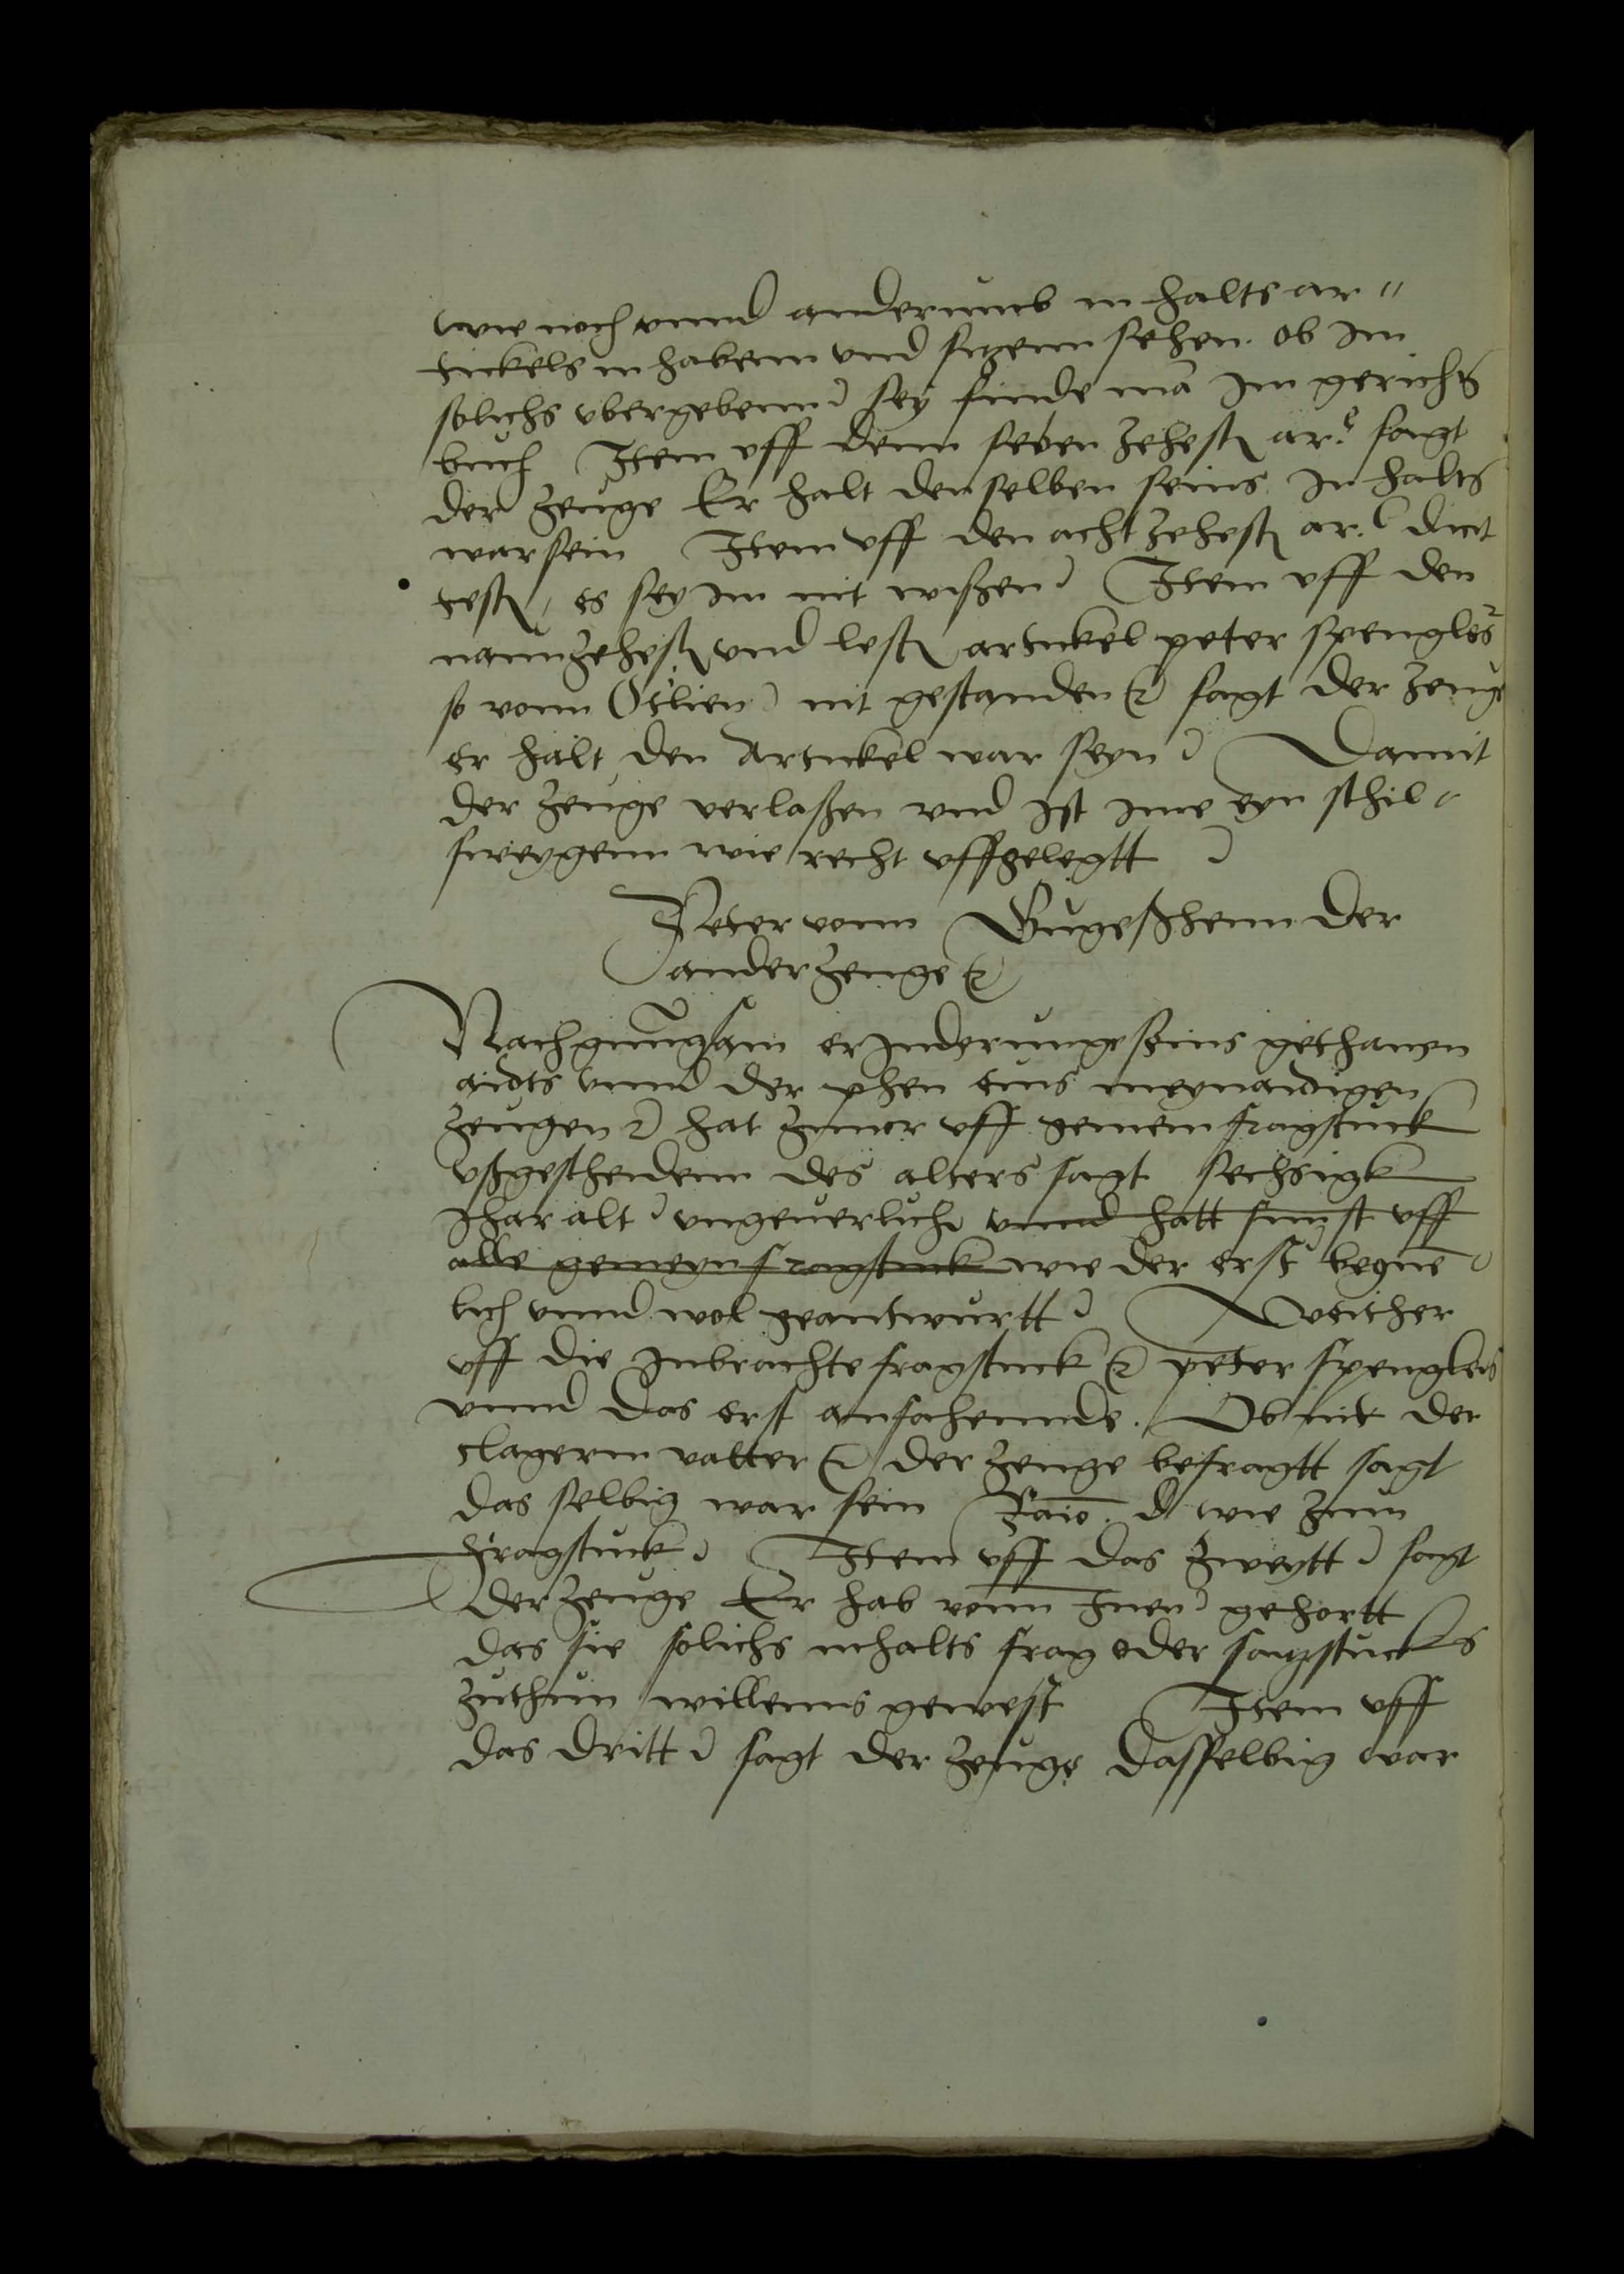 wie noch unnd anderunb inhalts ar"
tickels inhabenn und sitzenn sehen. ob Im
solichs ubergebenn) sey finde ma Im gerichts
buch Item uff denn seben zehest ar: sagt
der zeuge Er halt denselben seins Inhalts
war sein Item uff den acht zehest ar: dict
test, es sey Im nit wißen) Item uff den
naunzehest und lest artickel peter spenglers
so vonn Otilien) nit gestanden sagt der zeuge
er halt den Artickel war seyn) Damit
der zeuge verlaßen und ist Ime eyn sthil"
sweygenn wie recht uffgelegtt)
Peter vonn Bugeßhenn der
ander zeuge
Nach gnugsam erInderunge seins gethanen
aidts unnd der phen eins meynaidigen
zeugen hat zuuor uff gemein fragstuck
ußgescheidenn des alters sagt sechsigk
Ihar alt) ungeuerlich unnd hatt sunst uff
alle gemeyn fragstuck wie der erst beque"
lich unnd wol geantwurtt) Weither
uff die Inbrachte fragstuck peter spenglers
unnd das erst anfahennde. Ob nit der
clagernn vatter der zeuge befragtt sagt
das selbig war sein Raio. d wie Inn
fragstuck) Item uff das zweytt) sagt
der zeuge Er hab vonn Inen) gehortt
das sie solichs inhalts frag oder satzstucks
zuthun willenns gewest Item uff
das dritt) sagt der zeuge dasselbig war